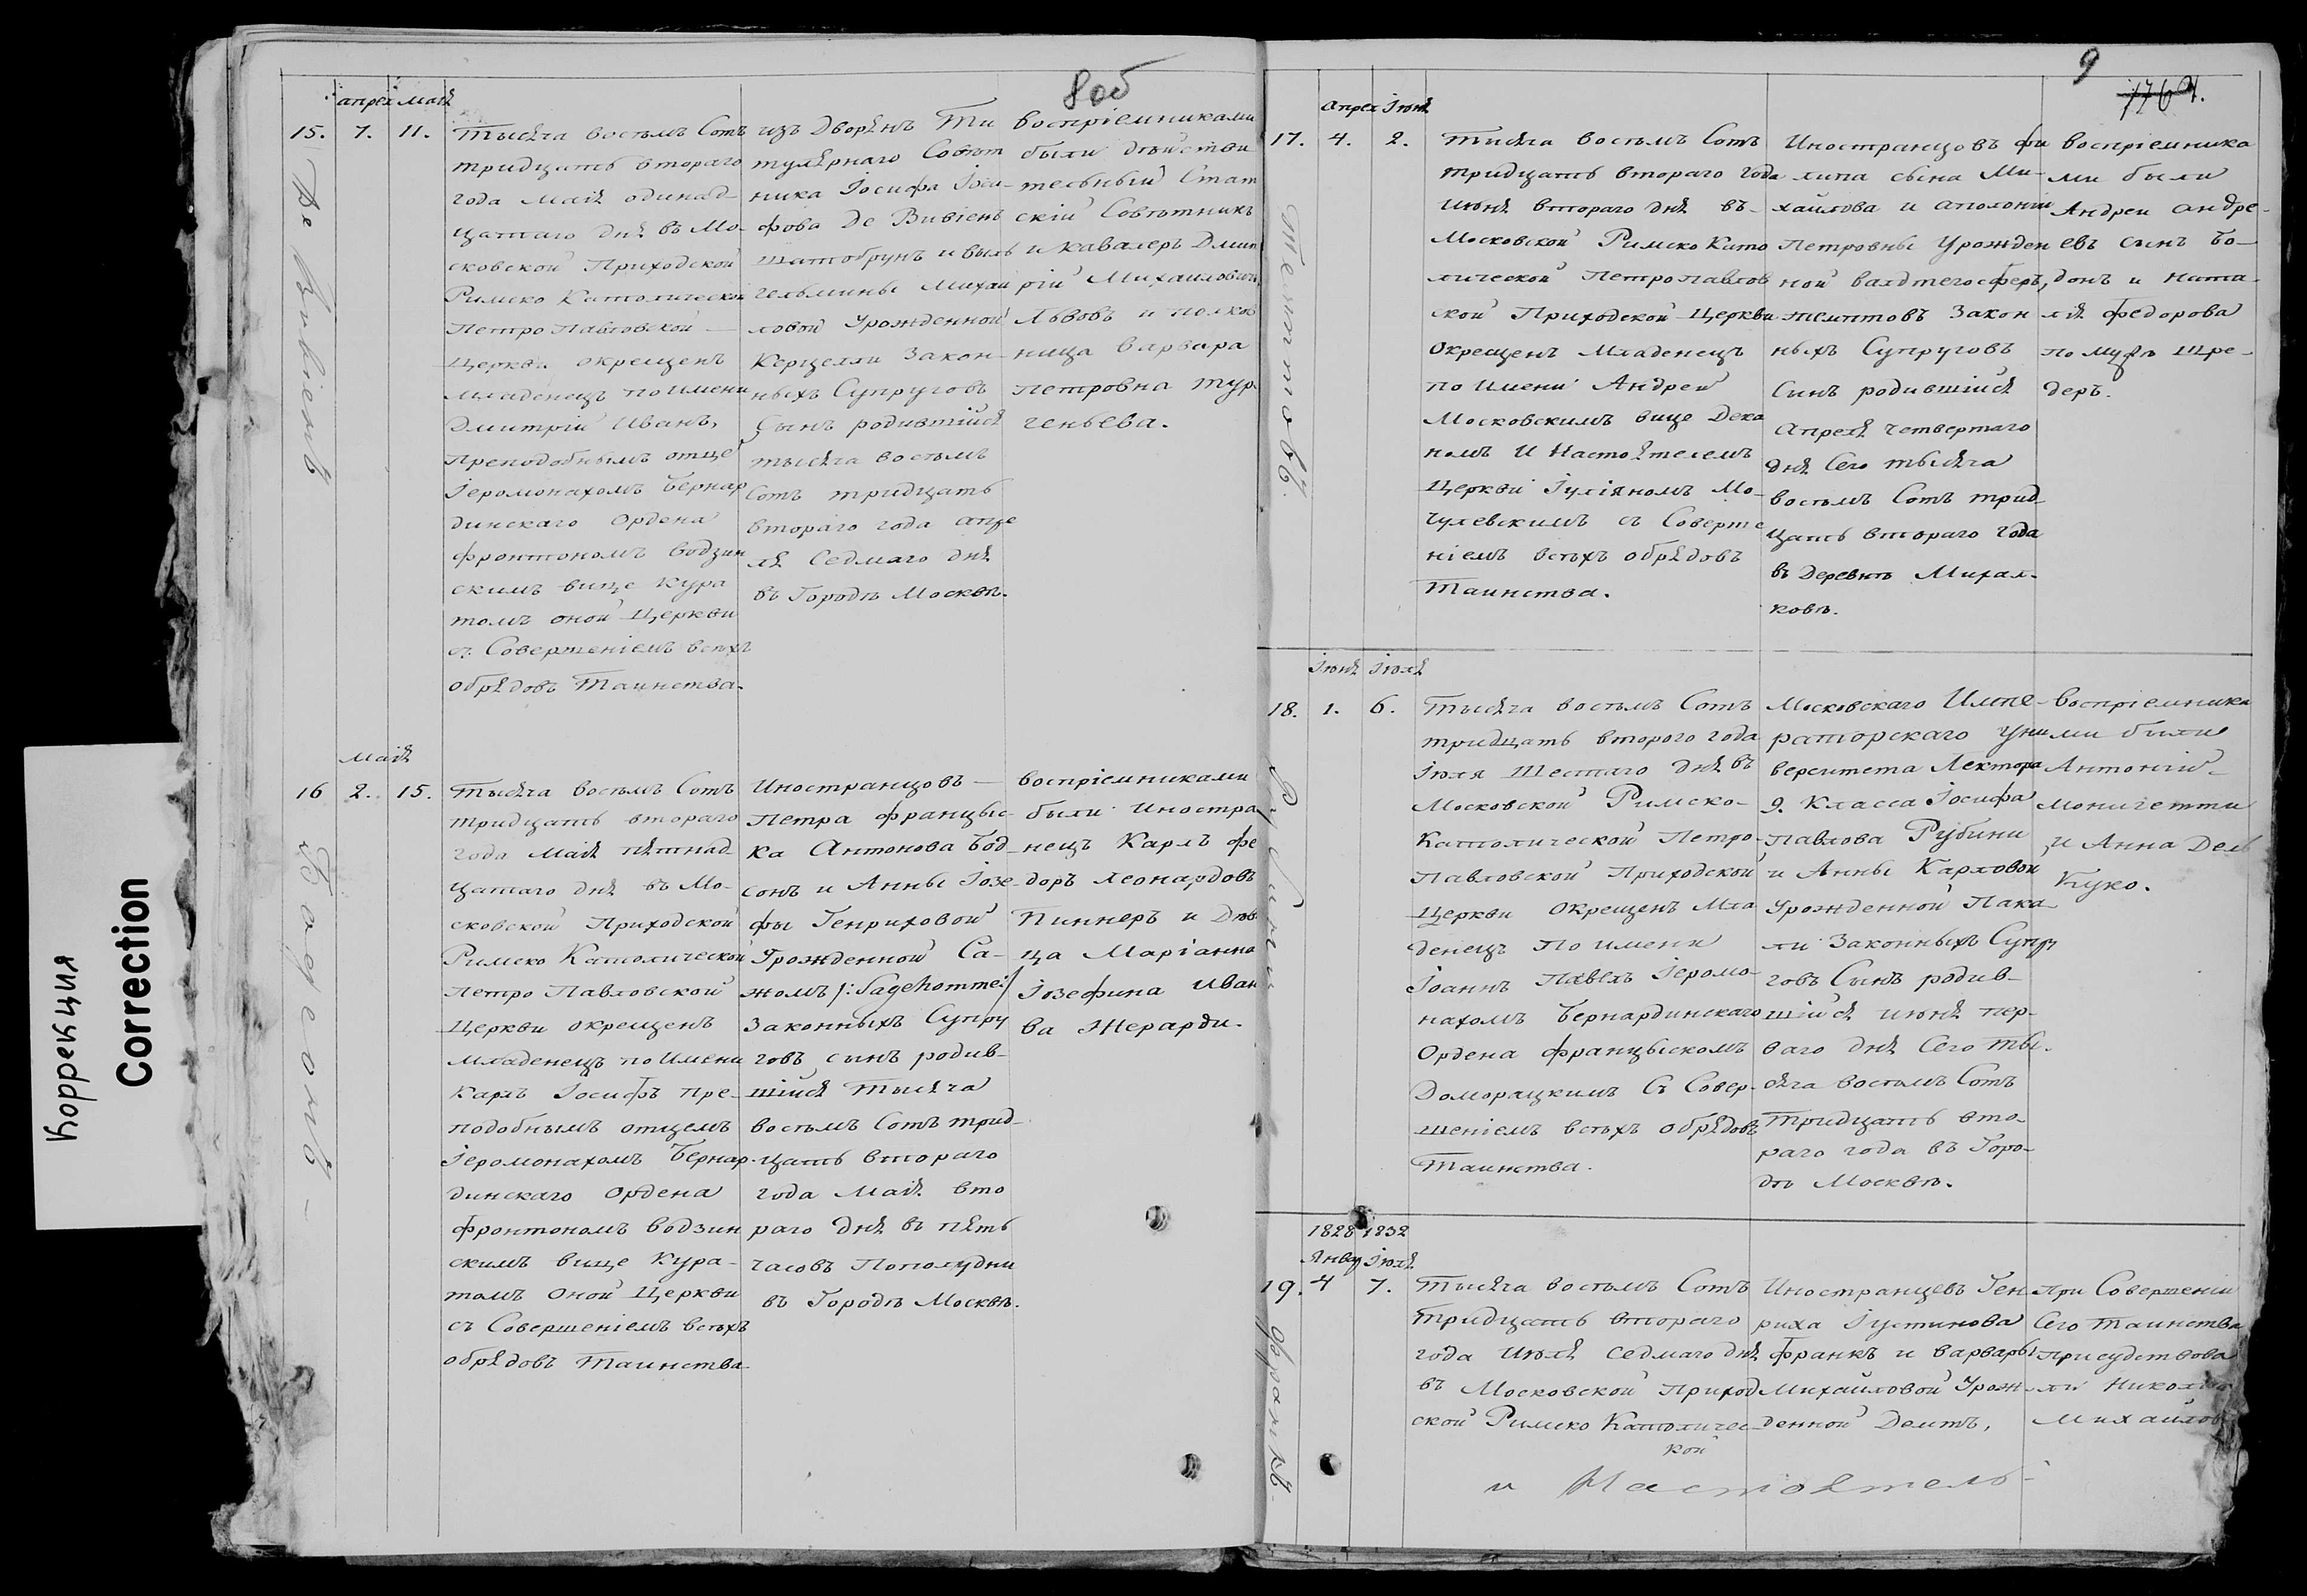 Коррекция
Correction
8 об
апрел маія
15. 7. 11.
Де Вивіенъ
Тысяча восемь Сотъ
тридцать втораго
года маія одинад-
цатаго дня въ Мо-
сковской Приходской
Римско Католической
Петро Павловской —
Церкви окрещенъ
младенецъ по имени
Дмитрій Иванъ,
Преподобнымъ отце
Іеромонахомъ Бернар
динскаго Ордена
фронтономъ Водзин
скимъ вице Кура
томъ оной Церкви
съ Совершеніемъ всѣхъ
обрядовъ Таинства.
изъ Дворянъ Ти
тулярнаго Совѣт
ника Іосифа Іоси-
фова Де Вивіенъ
Шатобрунъ и Виль
гельмины Михай
ловой Урожденной
Керцелли Закон-
ныхъ Супруговъ
Сынъ родившійся
тысяча восемь
Сотъ тридцать
втораго года апре
ля Седмаго дня
въ Городѣ Москвѣ.
воспріемниками
были дѣйстви
тельный Стат
скій Совѣтникъ
и Кавалеръ Дмит
рій Михайловичь
Львовъ и полков
ница Варвара
Петровна Тур
геньева.
маія
16 2. 15.
Бодсонъ -
Тысяча восемь Сотъ
тридцать втораго
года маія пятнад
цатаго дня въ Мо-
сковской Приходской
Римско Католической
Петро Павловской
Церкви окрещенъ
младенецъ по имени
Карлъ Іосифъ Пре-
подобнымъ отцемъ
Іеромонахомъ Бернар-
динскаго Ордена
фронтономъ Водзин
скимъ вице Кура-
томъ оной Церкви
съ Совершеніемъ всѣхъ
обрядовъ Таинства
Иностранцовъ —
Петра францыс-
ка Антонова Бод-
сонъ и Анны Іозе-
фы Генриховой
Урожденной Са-
жомъ /:Sagehomme:/
Законныхъ Супру
говъ сынъ родив-
шійся Тысяча
восемь Сотъ трид-
цать втораго
года Маія вто
раго дня въ пять
часовъ Пополудни
въ Городѣ Москвѣ.
воспріемниками
были Иностра
нецъ Карлъ фе
доръ Леонардовъ
Пиннеръ и Дѣви
ца Маріанна
Іозефина Ивано
ва Жерарди.
9
апрел Іюня
17. 4. 2.
Темптовъ.
Тысяча восемь Сотъ
тридцать втораго года
Июня втораго дня въ-
Московской Римско Като
лической Петропавлов
ской Приходской Церкви
Окрещенъ Младенецъ
по Имени Андрей
Московскимъ вице Дека
номъ и Настоятелемъ
Церкви Іуліяномъ Мо-
чулевскимъ съ Соверше
ніемъ всѣхъ обрядовъ
Таинства.
Иностранцовъ фи
липа сына Ми-
хайлова и Аполоніи
Петровны Урожден
ной
темптовъ Закон
ныхъ Супруговъ
Сынъ родившійся
Апреля четвертаго
дня Сего тысяча
восемь Сотъ трид-
цать втораго года
въ Деревнѣ Михал-
ковѣ.
Воспріемника
ми были
Андреи Андре-
евъ сынъ Бо-
донъ и Ната-
лія федорова
по мужѣ Шре-
деръ.
Іюня Іюля
18. 1. 6.
Рубини
Тысяча восемь Сотъ
тридцать второго года
Іюля Шестаго дня въ
Московской Римско-
Католической Петро-
Павловской Приходской
Церкви Окрещенъ Мла
денецъ по имени
Іоаннъ Павелъ Іеромо-
нахомъ Бернардинскаго
Ордена францыскомъ
Доморацкимъ Съ Совер-
шеніемъ всѣхъ обрядовъ
Таинства.
Московскаго Импе-
раторскаго Уни
верситета Лектора
9. класса Іосифа
Павлова Рубини
и Анны Карловой
Урожденной Пака-
ли Законныхъ Супру
говъ Сынъ родив-
шійся июня пер-
ваго дня Сего Ты-
сяча восемь Сотъ
Тридцать вто-
раго года въ Горо-
дѣ Москвѣ.
Воспріемника
ми были
Антоній
Моничетти
и Анна Дель
Куко.
1828 1832
Январ Іюля
19. 4 7.
Франкъ -
Тысяча восемь Сотъ
тридцать втораго
года Июля Седмаго дня
въ Московской Приход
ской Римско Католичес-
кой
Иностранцевъ Ген-
риха Іустинова
франкъ и Варвары
Михайловой Урож-
денной Демтъ,
При Совершеніи
Сего Таинства
Присудствова
ли Николай
Михайлов
и Настоятель